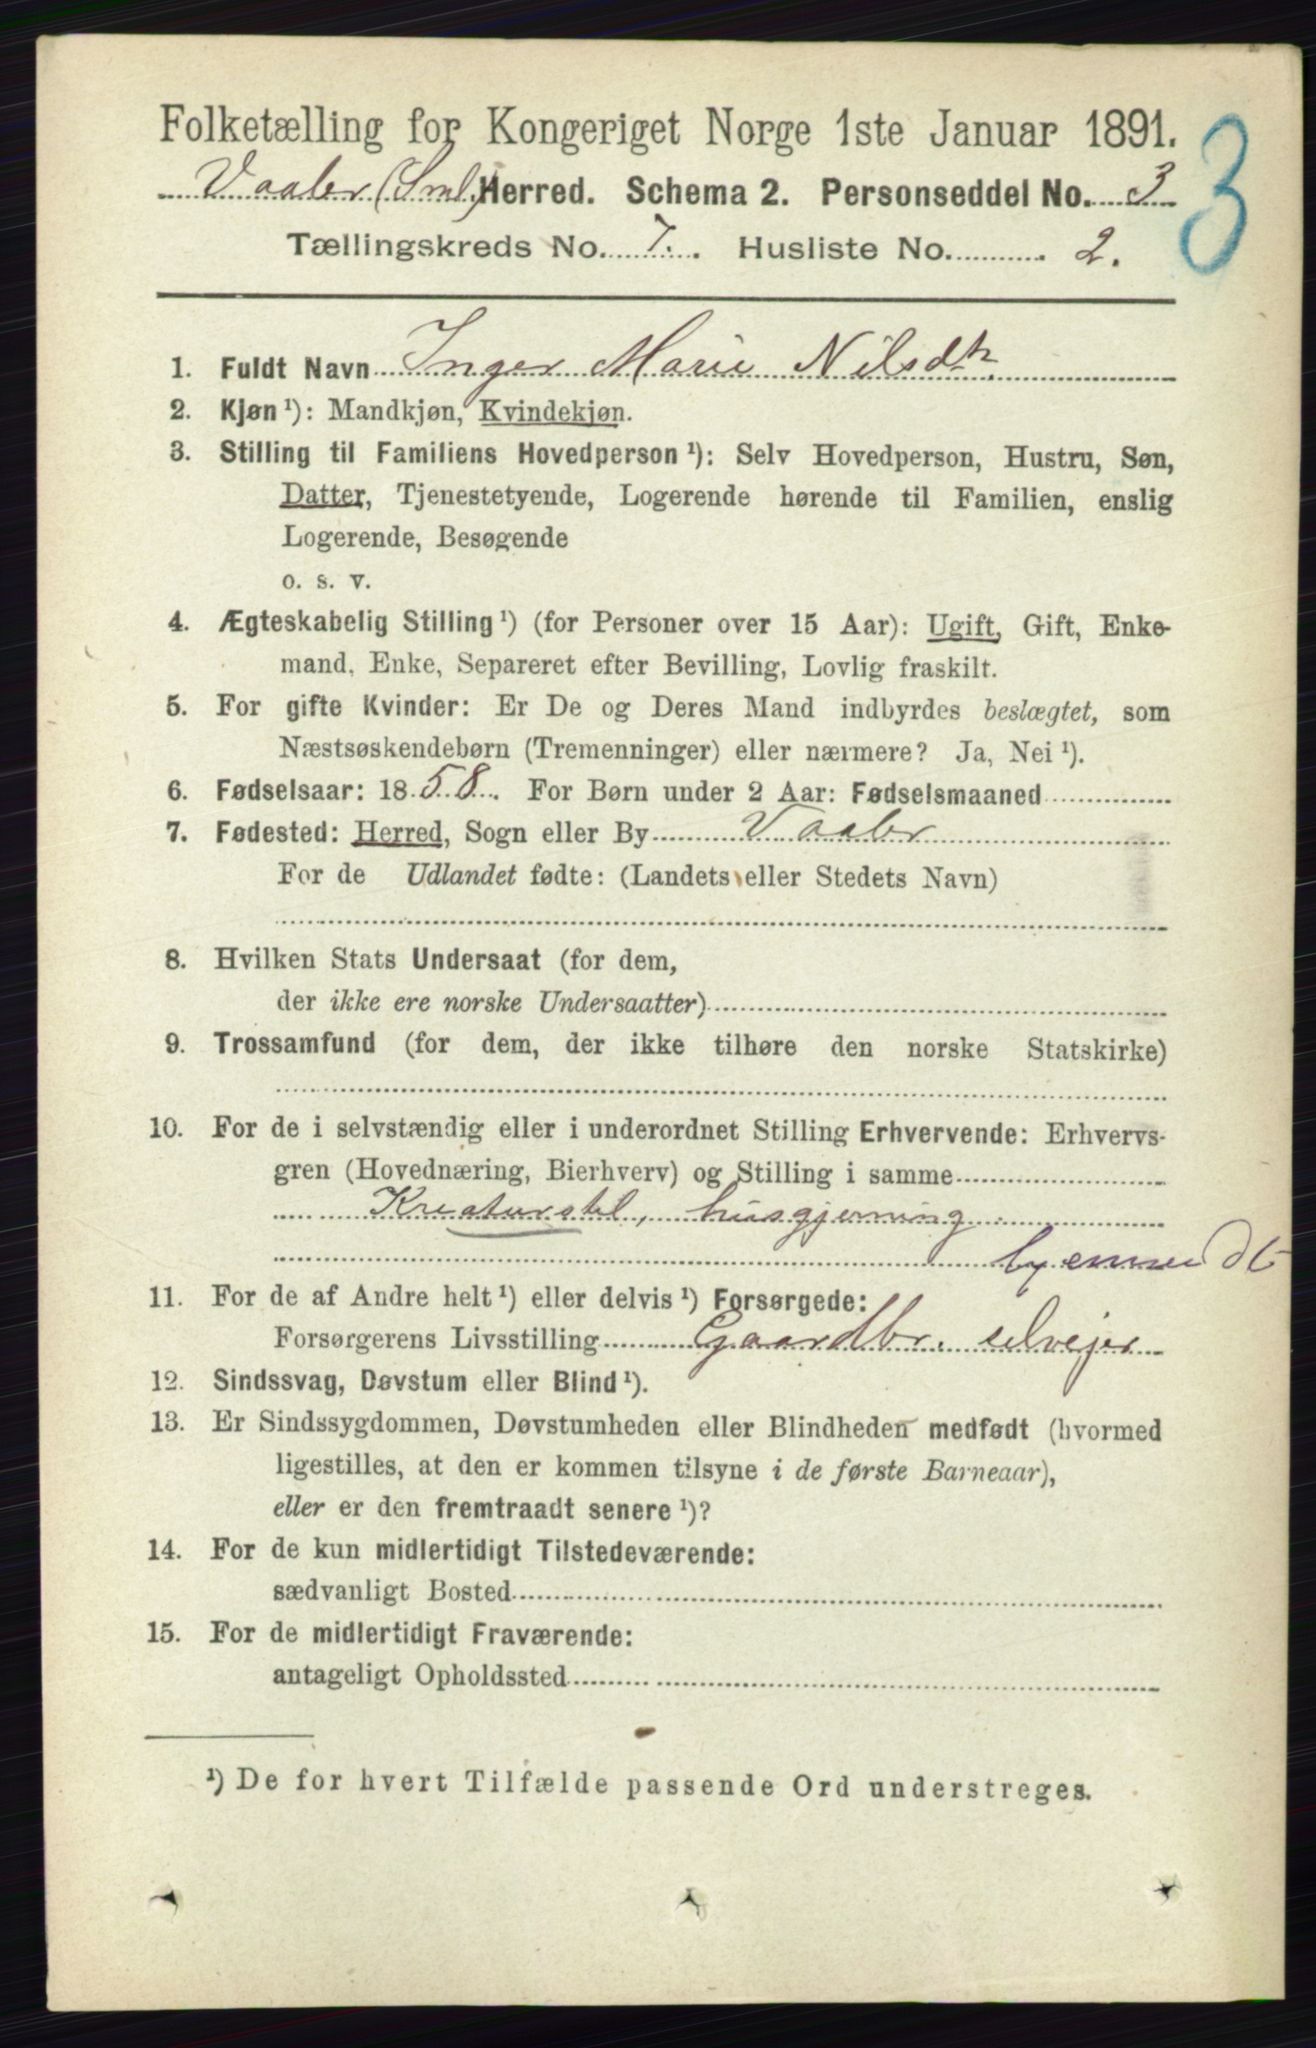 Folketælling for Kongeriget Norge 1ste Januar 1891.
Vaaler (Sml.) Herred. Schema 2. Personseddel No. 3
3
Tællingskreds No. 7. Husliste No. 2.
1. Fuldt Navn Inger Marie Nilsdtr
2. Kjøn ¹): Mandkjøn, Kvindekjøn.
3. Stilling til Familiens Hovedperson ¹): Selv Hovedperson, Hustru, Søn,
Datter, Tjenestetyende, Logerende hørende til Familien, enslig
Logerende, Besøgende
o. s. v.
4. Ægteskabelig Stilling ¹) (for Personer over 15 Aar): Ugift, Gift, Enke-
mand, Enke, Separeret efter Bevilling, Lovlig fraskilt.
5. For gifte Kvinder: Er De og Deres Mand indbyrdes beslægtet, som
Næstsøskendebørn (Tremenninger) eller nærmere? Ja, Nei ¹).
6. Fødselsaar: 1858. For Børn under 2 Aar: Fødselsmaaned
7. Fødested: Herred, Sogn eller By Vaaler
For de Udlandet fødte: (Landets eller Stedets Navn)
8. Hvilken Stats Undersaat (for dem,
der ikke ere norske Undersaatter)
9. Trossamfund (for dem, der ikke tilhøre den norske Statskirke)
10. For de i selvstændig eller i underordnet Stilling Erhvervende: Erhvervs-
gren (Hovednæring, Bierhverv) og Stilling i samme
Kreaturstel, husgjerning
11. For de af Andre helt ¹) eller delvis ¹) Forsørgede:
Forsørgerens Livsstilling Gaardbr. selvejer
12. Sindssvag, Døvstum eller Blind ¹).
13. Er Sindssygdommen, Døvstumheden eller Blindheden medfødt (hvormed
ligestilles, at den er kommen tilsyne i de første Barneaar),
eller er den fremtraadt senere ¹)?
14. For de kun midlertidigt Tilstedeværende:
sædvanligt Bosted
15. For de midlertidigt Fraværende:
antageligt Opholdssted
¹) De for hvert Tilfælde passende Ord understreges.